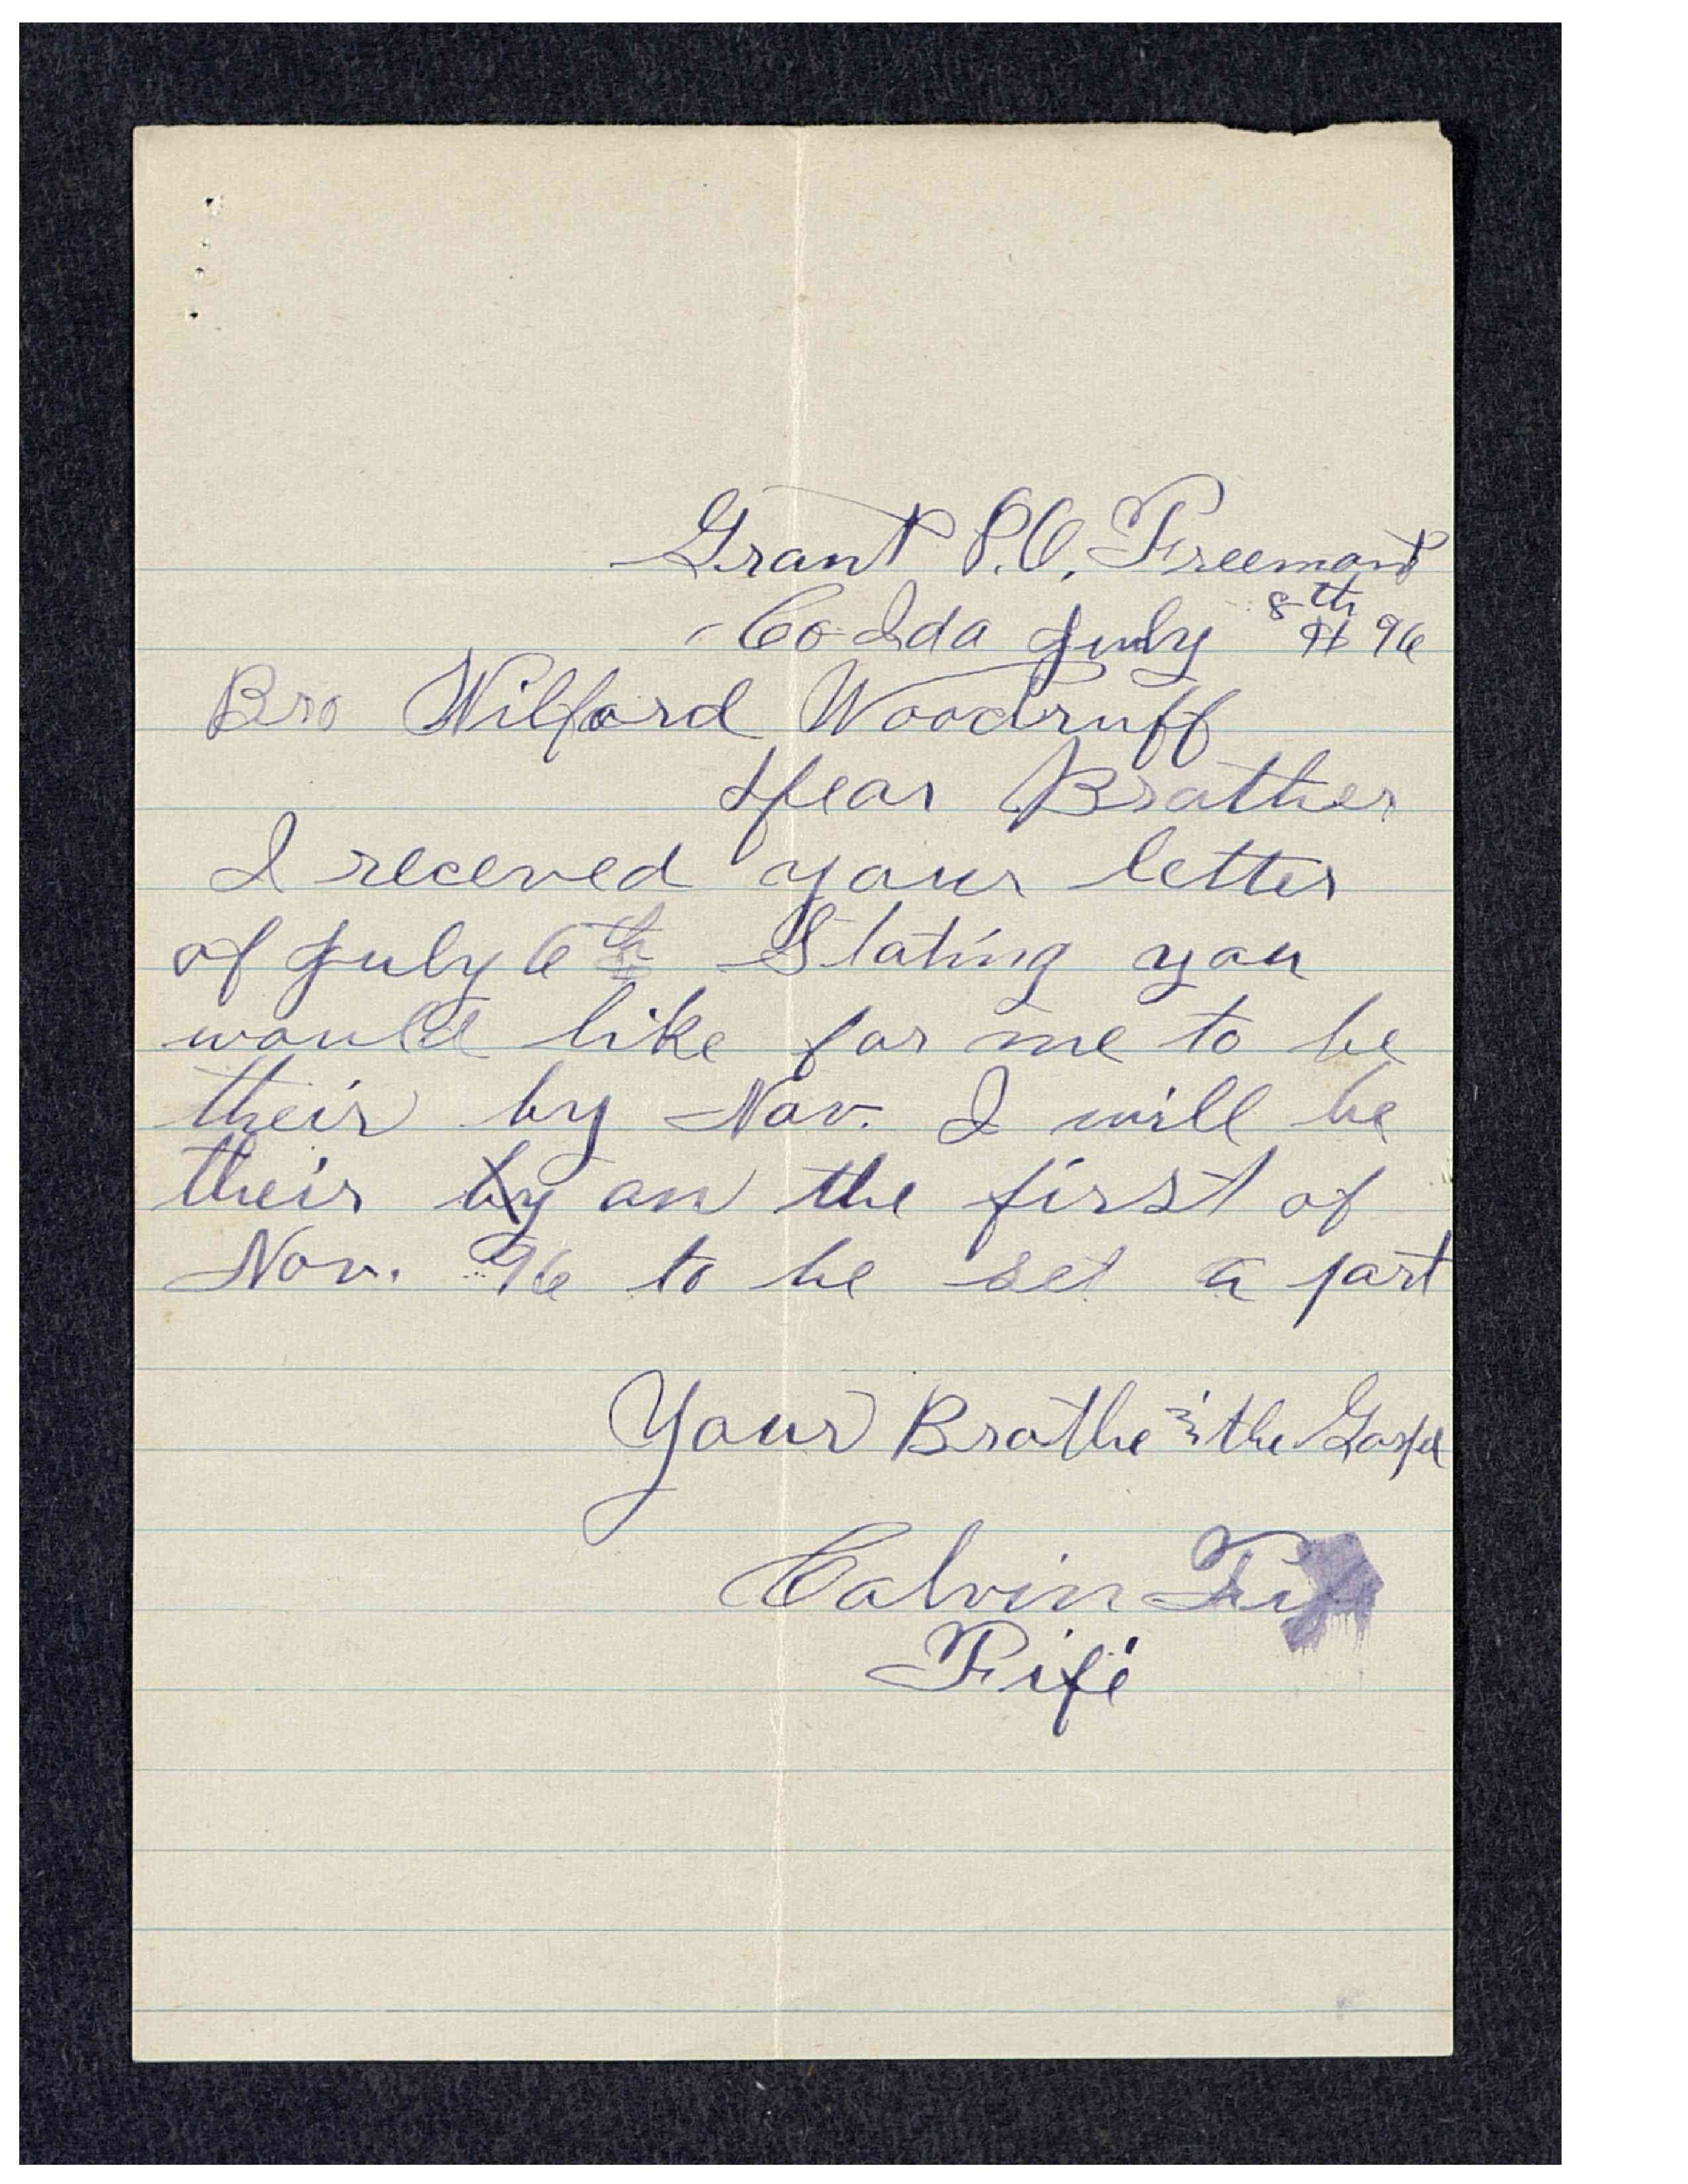 Grant P.O. Freemont
Co Ida July 8th 96
Bro Wilford Woodruff
Dear Brother
I receved your letter
of July 6th Stating you
would like for me to be
their by Nov. I will be
their by on the first of
Nov. 96 to be set a part
Your Brothe in the Gospel
Calvin Fife
Fife